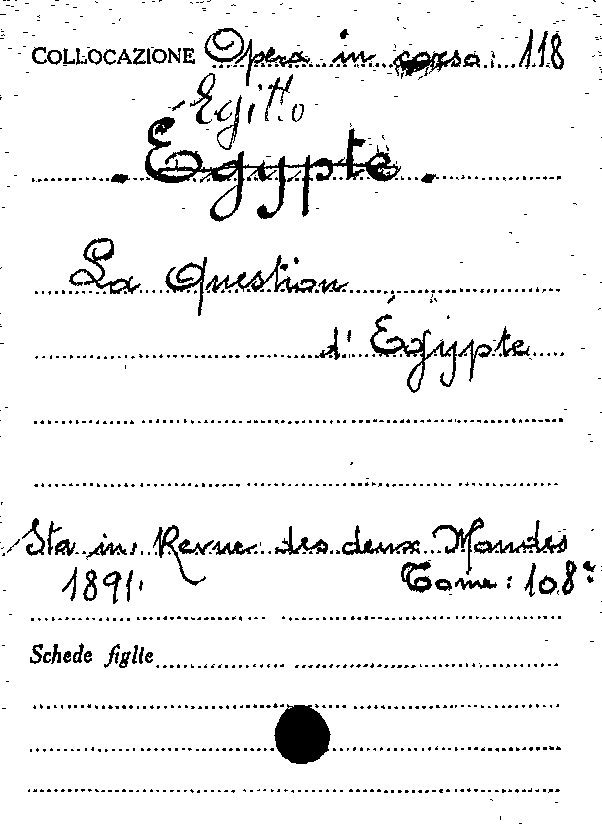 COLLOCAZIONE Opera in corso: 118
Egitto
. Égypte .
La Question
d'Égypte
Sta in: Revue des deux Mondes
1891. Tome: 108º
Schede figlie